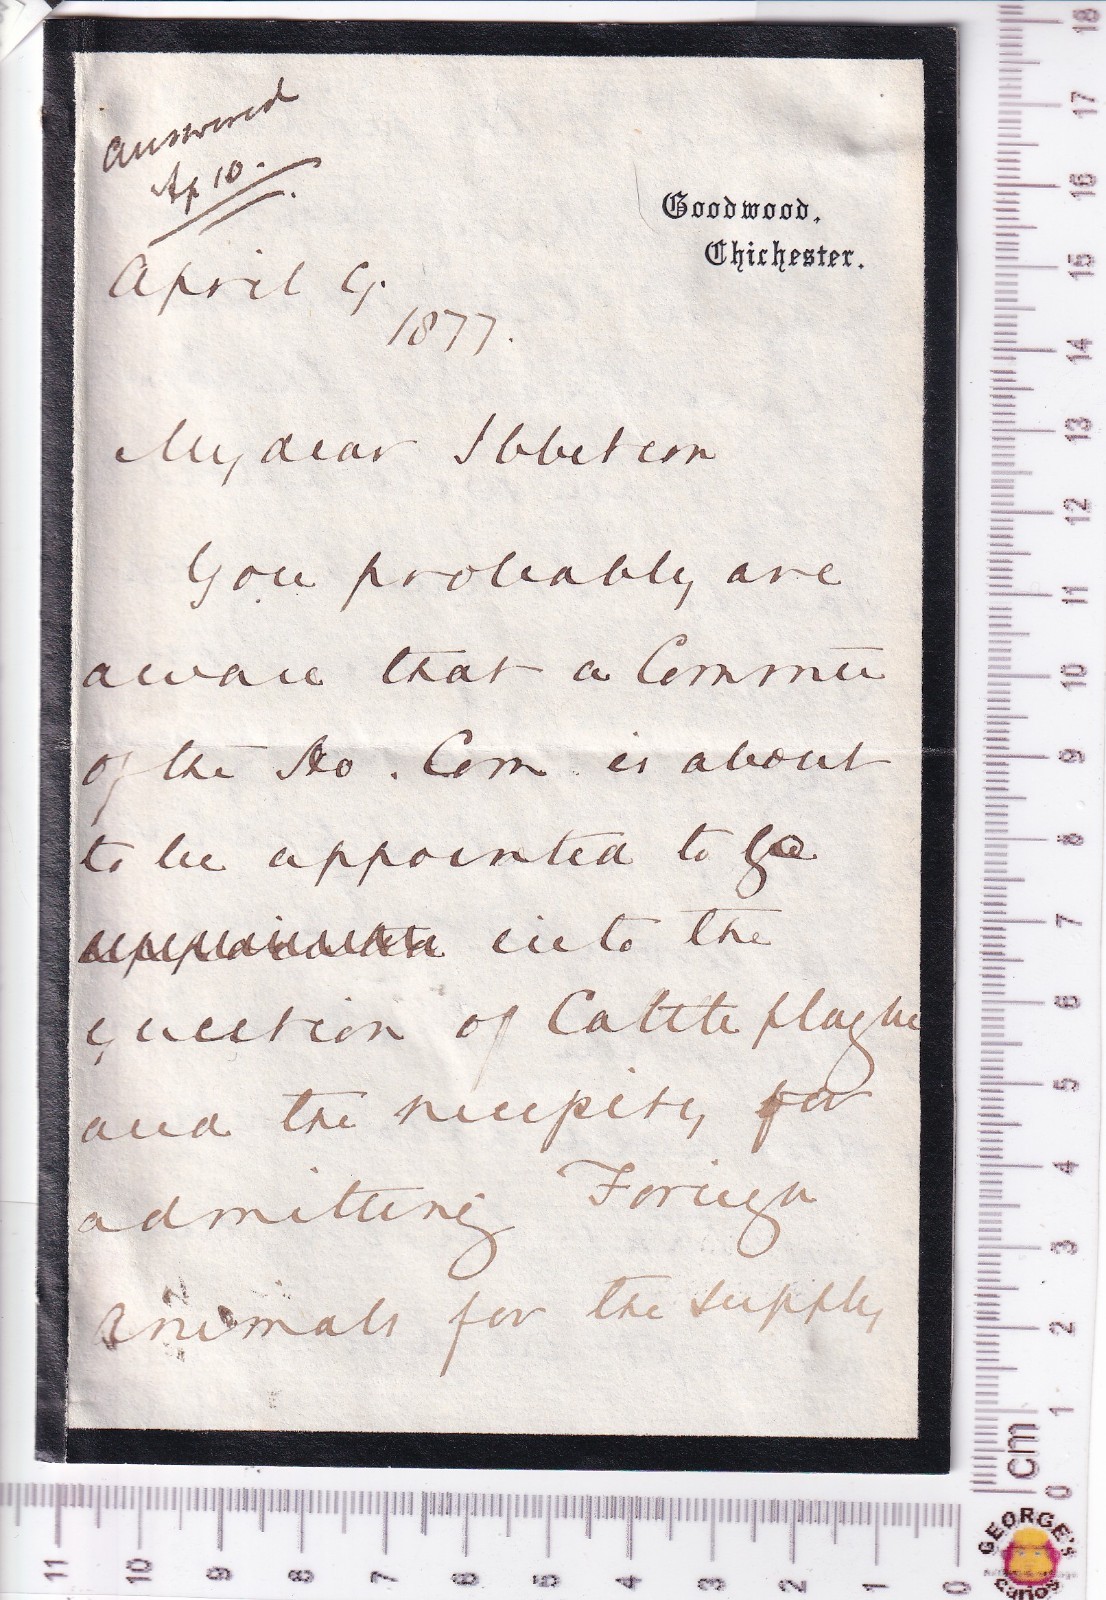 answered
Ap 10.
Goodwood,
Chichester.
April 9.
1877.
My dear Ibbetson
You probably are
aware that a Commtee
of the Ho. Com. is about
to be appointed to go
into the
question of Cattle plague
and the necessity for
admitting Foreign
animals for the supply
18
17
16
15
14
13
12
11
10
9
8
7
6
5
4
3
2
1
cm
0
11
10
9
8
7
6
5
4
3
2
1
0
GEORGE's
curios